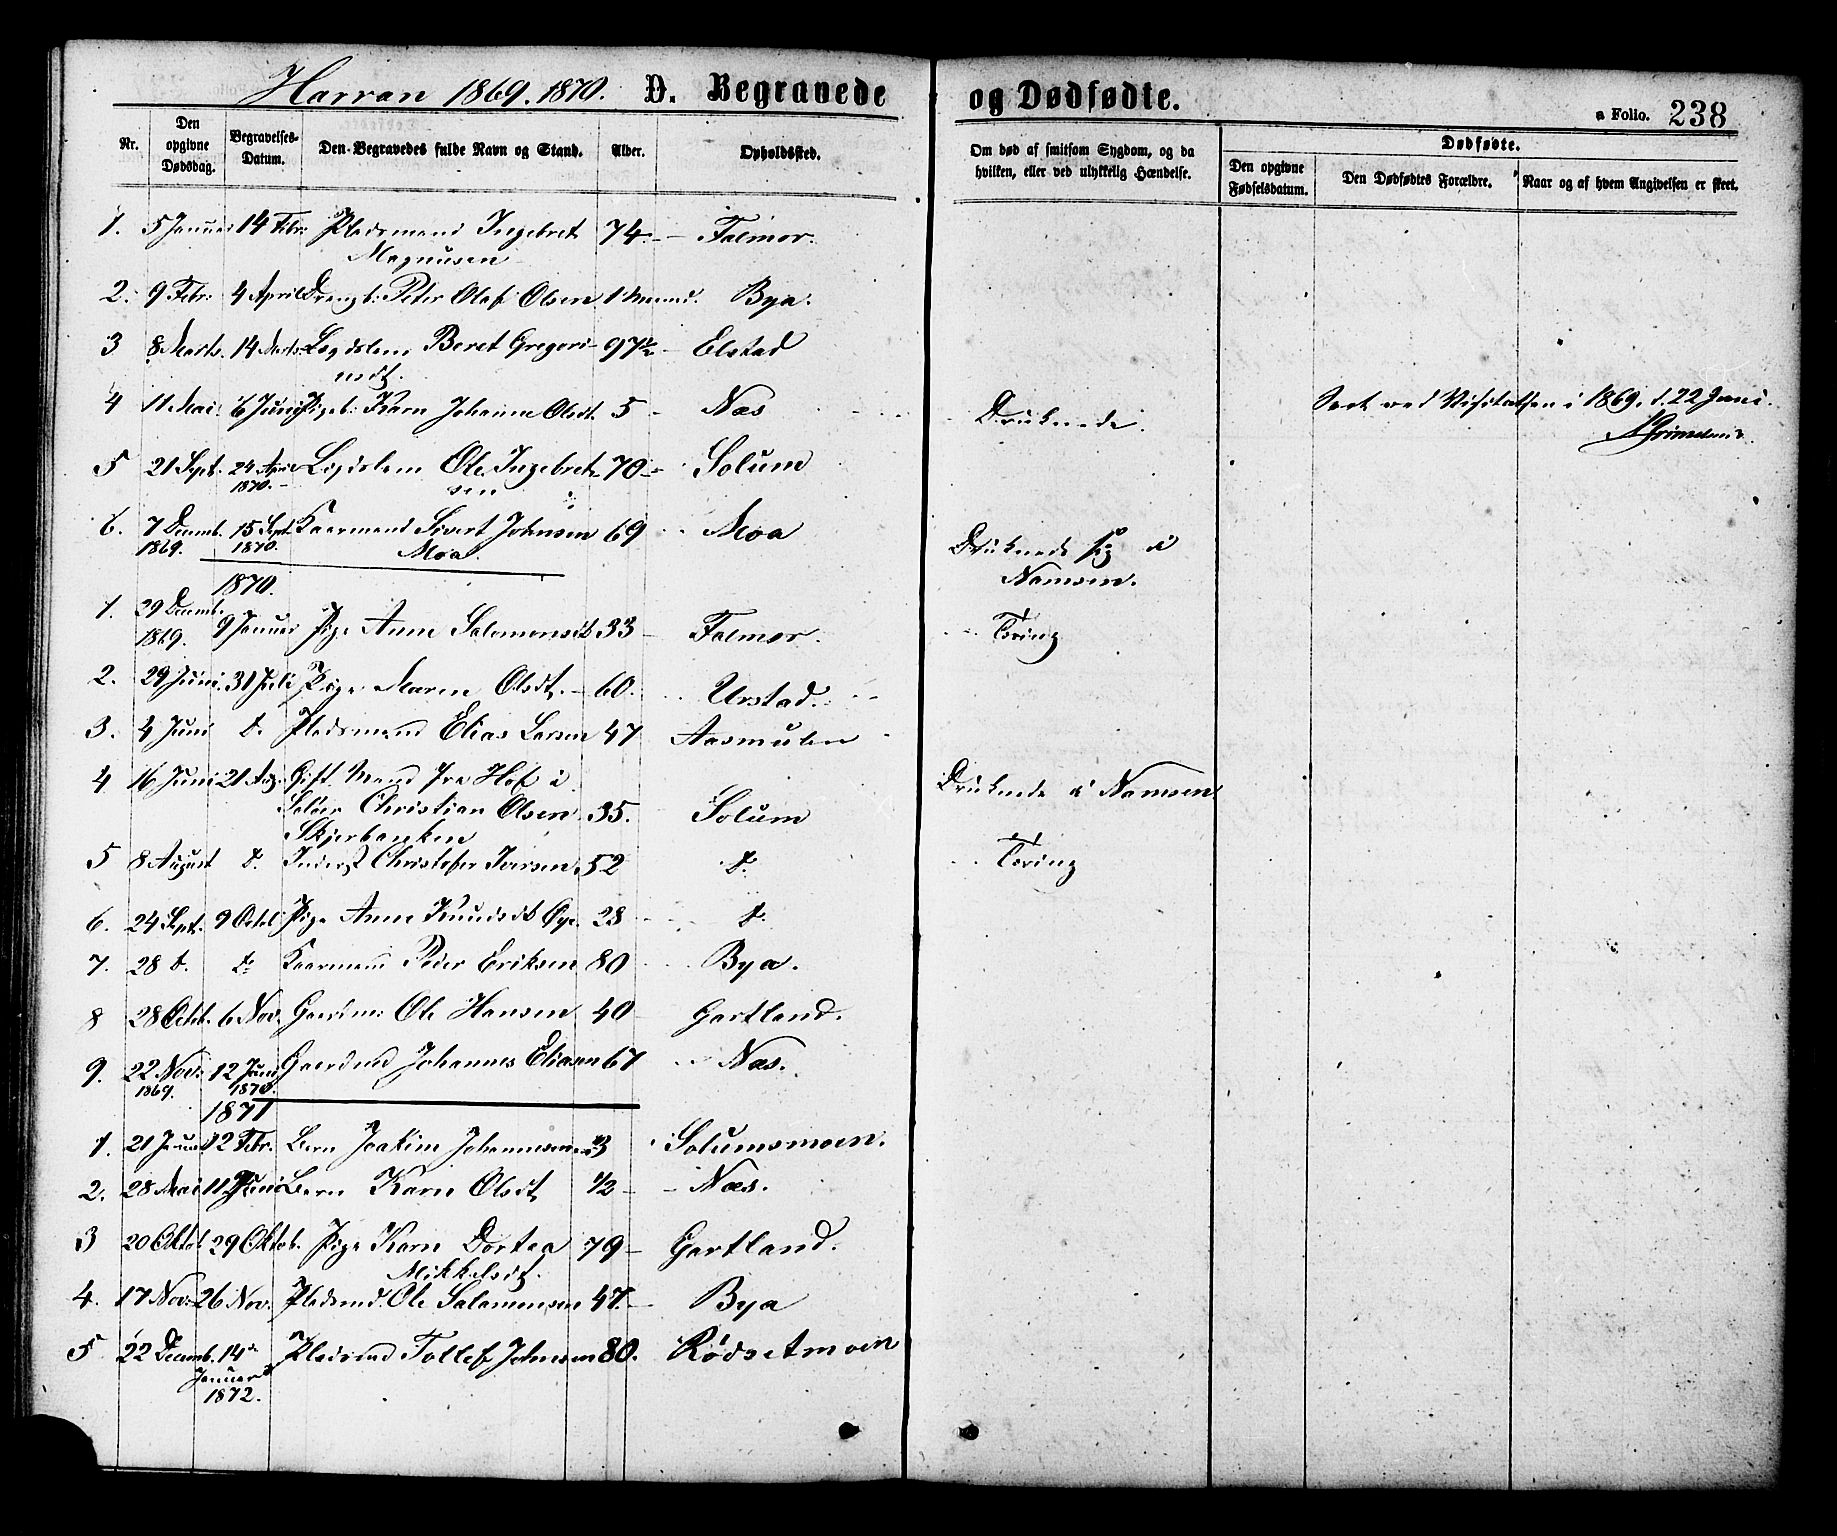 Harran 1869. 1870. D. Begravede og Dødfødte.
a Folio. 238
Nr. Den opgivne Dødsdag. Begravelses-Datum. Den Begravedes fulde Navn og Stand. Alder. Opholdssted. Om død af smitsom Sygdom, og da hvilken, eller ved ulykkelig Hændelse. Dødfødte. Den opgivne Fødselsdatum. Den Dødfødtes Forældre. Naar og af hvem Angivelsen er skeet.
1. 5 Januar 14 Febr. Pladsmand Ingebret 74 Falmor.
Magnusen
2. 9 Febr. 4 April Drengb. Peter Olaf Olsen 1 Maaned. Bya.
3 8 Marts. 14 Marts Lægdslem Beret Gregori- 97½ Elstad
usdt.
4 11 Mai 6 Juni Pigeb. Karn Johanne Olsdt. 5 Næs Druknede. Seet ved Visitatsen i 1869. d. 22 Juni.
5 21 Sept. 24 April Lægdslem Ole Ingebret- 70 Solum
1870. sen
6. 7 Decemb. 15 Sept. Kaarmand Sivert Johnsen 69 Moa Druknede sig i
1869. 1870. Moa. Namsen.
1870.
1. 29 Decemb. 9 Januar Pige Anne Salomonsdt 33 Falmor. Tæring
1869.
2. 29 Juni. 31 Juli Pige Maren Olsdt. 60. Urstad.
3. 4 Juni d. Pladsmand Elias Larsen 47 Aasmulen
4 16 Juni 21 Aug. Gift Mand fra Hof i
Soløer Christian Olsen 35. Solum Druknede i Namsen
Skjerbanken
5 8 August d. Inderst Christofer Iversen 52 d. Tæring
6. 24 Sept. 9 Octob Pige Anne Knudsdt Øye. 28 d.
7. 28 d. d. Kaarmand Peder Eriksen 80 Bya.
8 28 Octob. 6 Nov. Gaardm. Ole Hansen 40 Gartland.
9. 22 Nov. 12 Juni Gaardmd Johannes Eliasen 67 Næs.
1869. 1870.
1871
1. 21 Januar 12 Febr. Barn Joakim Johannesen 3 Solumsmoen.
2. 28 Mai 11 Juni Barn Karn Olsdt 1/2 Næs.
3 20 Oktob 29 Oktob. Pige Karn Dortea 79 Gartland.
Mikkelsdt.
4. 17 Nov. 26 Nov. Pladsmd. Ole Salamonsen 47. Bya
5 22 Decemb. 14 Pladsmd Tollef Johnsen 80. Rödsetmoen
Januar
1872.